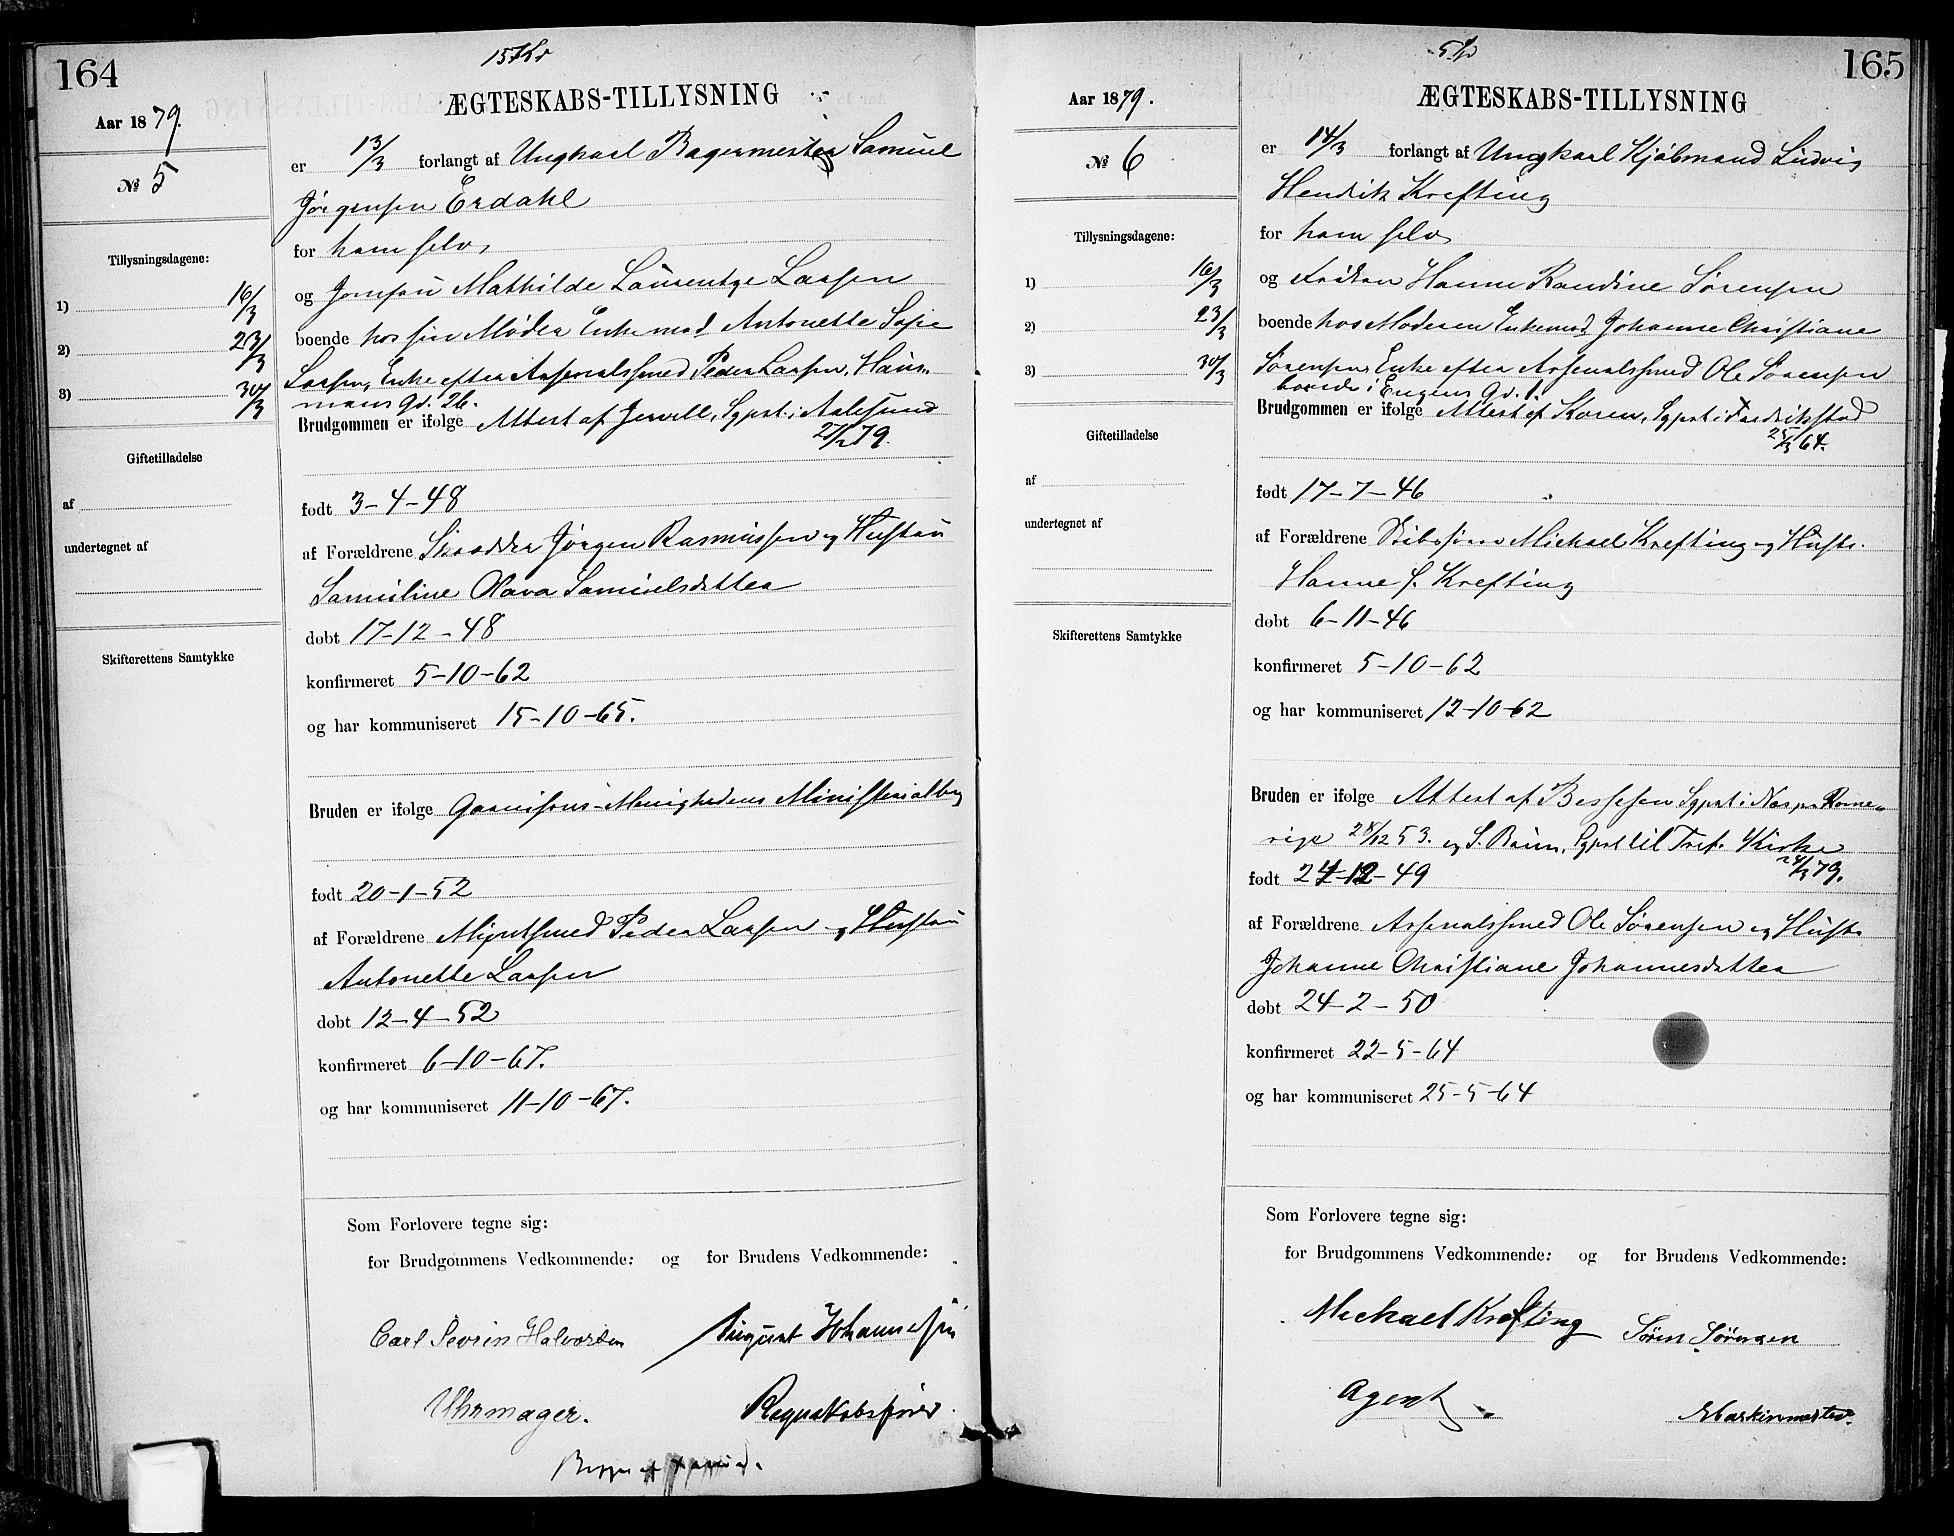 164
15 Kr
Aar 1879.
№ 5
Tillysningsdagene:
1) 16/3
2) 23/3
3) 30/3
Giftetilladelse
af
undertegnet af
Skifterettens Samtykke
ÆGTESKABS-TILLYSNING
er 13/3 forlangt af Ungkarl Bagermester Samuel
Jørgensen Erdahl
for ham selv
og Jomfru Mathilde Laurentze Larsen
boende hos sin Moder Enkemad. Antonette Sofie
Larsen, Enke efter Arsenalssmed Peder Larsen, Haus-
manns Gd. 26.
Brudgommen er ifølge Attest af Jervell, Sgprst. i Aalesund
79.
født 3-4-48
af Forældrene Skrædder Jørgen Rasmussen og Hustru
Samuline Olava Samuelsdatter
døbt 17-12-48
konfirmeret 5-10-62
og har kommuniseret 15-10-65.
Bruden er ifølge Garnisons-Menighedens Ministerialbog
født 20-1-52
af Forældrene Myntsmed Peder Larsen og Hustru
Antonette Larsen
døbt 12-4-52
konfirmeret 6-10-67.
og har kommuniseret 11-10-67.
Som Forlovere tegne sig:
for Brudgommens Vedkommende: og for Brudens Vedkommende:
Carl Sevrin Halvorsen August Johannessen
Uhrmager. Regnskabsfører.
Begge af
165
Aar 1879.
№ 6
Tillysningsdagene:
1) 16/3
2) 23/3
3) 30/3
Giftetilladelse
af
undertegnet af
Skifterettens Samtykke
ÆGTESKABS-TILLYSNING
er 14/3 forlangt af Ungkarl Kjøbmand Ludvig
Hendrik Krefting
for ham selv
og Frøken Hanne Randine Sørensen
boende hos Moderen Enkemad. Johanne Christiane
Sørensen, Enke efter Arsenalssmed Ole Sørensen
boende i Engens Gd. 1.
Brudgommen er ifølge Attest af Koren, Sgprst. i Fredriksstad
25/3 64.
født 17-7-46
af Forældrene Skibsfører Michael Krefting og Hustr.
Hanne f. Krefting
døbt 6-11-46
konfirmeret 5-10-62
og har kommuniseret 12-10-62
Bruden er ifølge Attest af Bessesen Sgprst. i Næs på Rome-
rige 28/12 53. og S. Bruun, Sgprst. til Tref. Kirke
24/1 79.
født 24-12-49
af Forældrene Arsenalssmed Ole Sørensen og Hustr.
Johanne Christiane Johannesdatter
døbt 24-2-50
konfirmeret 22-5-64
og har kommuniseret 25-5-64
Som Forlovere tegne sig:
for Brudgommens Vedkommende: og for Brudens Vedkommende:
Michael Krefting Sören Sörensen
Agent. Maskinmester.